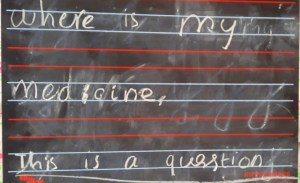 where is my
medicine,
This is a question